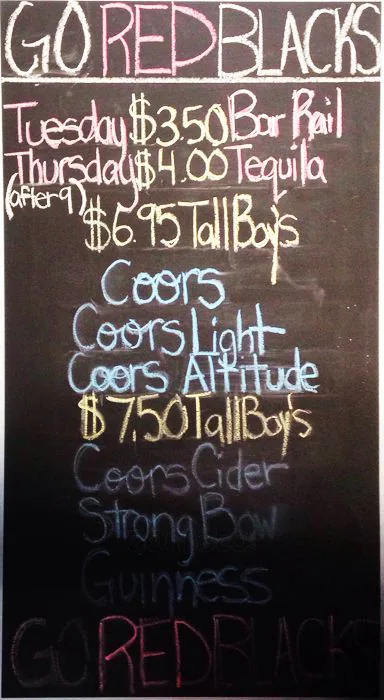 GO REDBLACKS
Tuesday $3.50 Bar Rail
Thursday $4.00 Tequila
(after 9)
$6.95 TallBoy's
Coors
Coors Light
Coors Altitude
$7.50 TallBoy's
Coors Cider
Strong Bow
Guinness
GO REDBLACKS